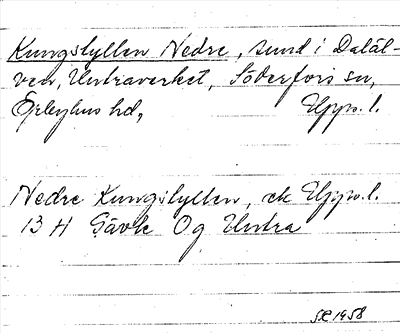 Kungstyllen Nedre, sund i Daläl-
ven, Untraverket, Söderfors sn,
Örbyhus hd, Upps. l.
Nedre Kungstyllen, ek Upps. l.
13 H Gävle Og Untra
1958